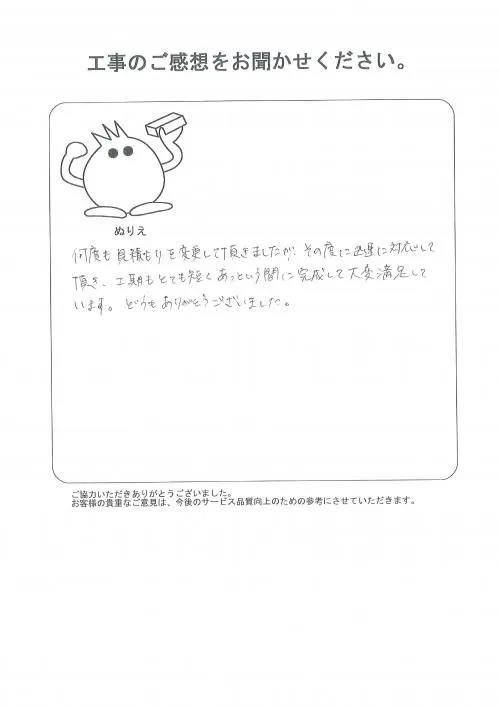 工事のご感想をお聞かせください。
ぬりえ
何度も見積もりを変更して頂きましたが、その度に迅速に対応して
頂き、工期もとても短くあっという間に完成して大変満足して
います。どうもありがとうございました。
ご協力いただきありがとうございました。
お客様の貴重なご意見は、今後のサービス品質向上のための参考にさせていただきます。